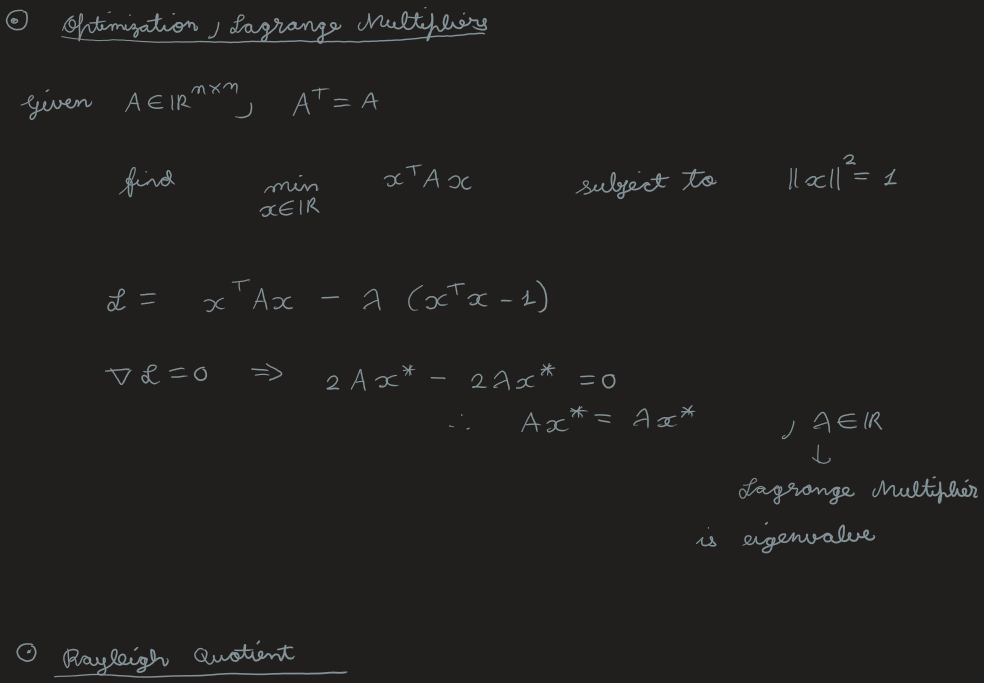 Optimization, Lagrange Multipliers
Given A ∈ ℝⁿˣⁿ, Aᵀ = A
find min xᵀAx subject to ||x||² = 1
x∈ℝ
ℒ = xᵀAx − λ (xᵀx − 1)
∇ℒ = 0 ⇒ 2Ax* − 2λx* = 0
∴ Ax* = λx* , λ ∈ ℝ
↓
Lagrange Multiplier
is eigenvalue
Rayleigh Quotient